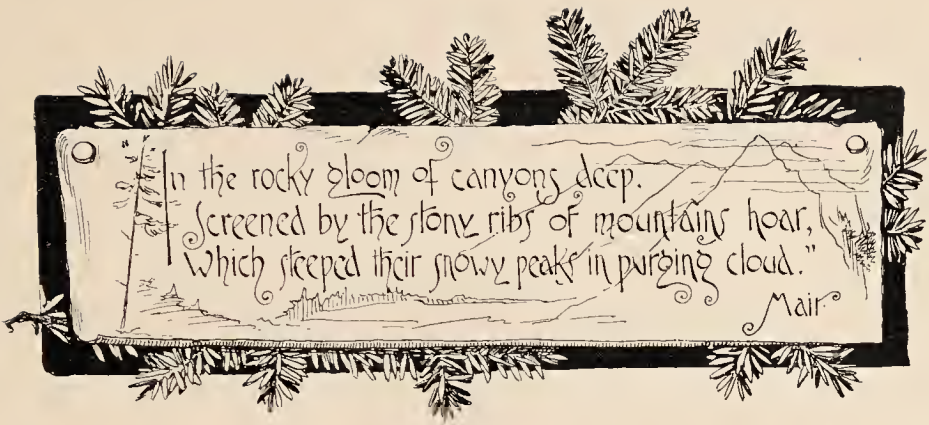 In the rocky gloom of canyons deep.
Screened by the stony ribs of mountains hoar,
Which steeped their snowy peaks in purging cloud."
Mair